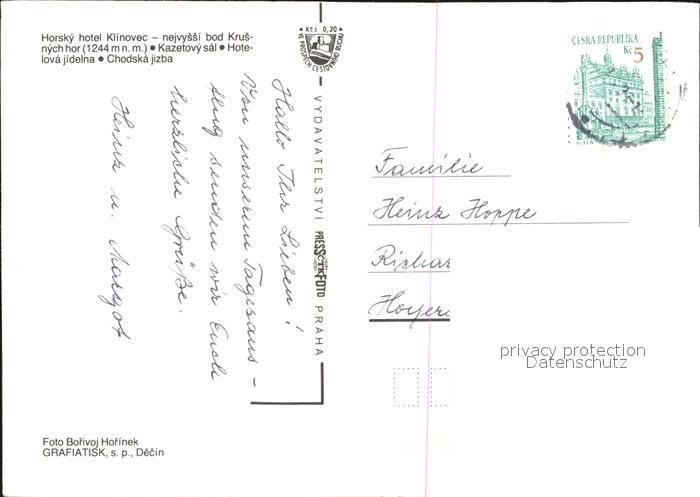 Horský hotel Klínovec – nejvyšší bod Kruš-
ných hor (1244 m n. m.) ● Kazetový sál ● Hote-
lová jídelna ● Chodská jizba
Kčs 0,20
VE PROSPĚCH CESTOVNÍHO RUCHU
ČESKÁ REPUBLIKA
Kč 5
PLZEŇ
Hallo Ihr Lieben!
Von unserem Tagesaus-
flug senden wir Euch
herzliche Grüße.
Heinz u. Margot
VYDAVATELSTVÍ PRESSFOTO PRAHA
ČTK
Familie
Heinz Hoppe
Richar
Hoyer
privacy protection
Datenschutz
Foto Bořivoj Hořínek
GRAFIATISK, s. p., Děčín